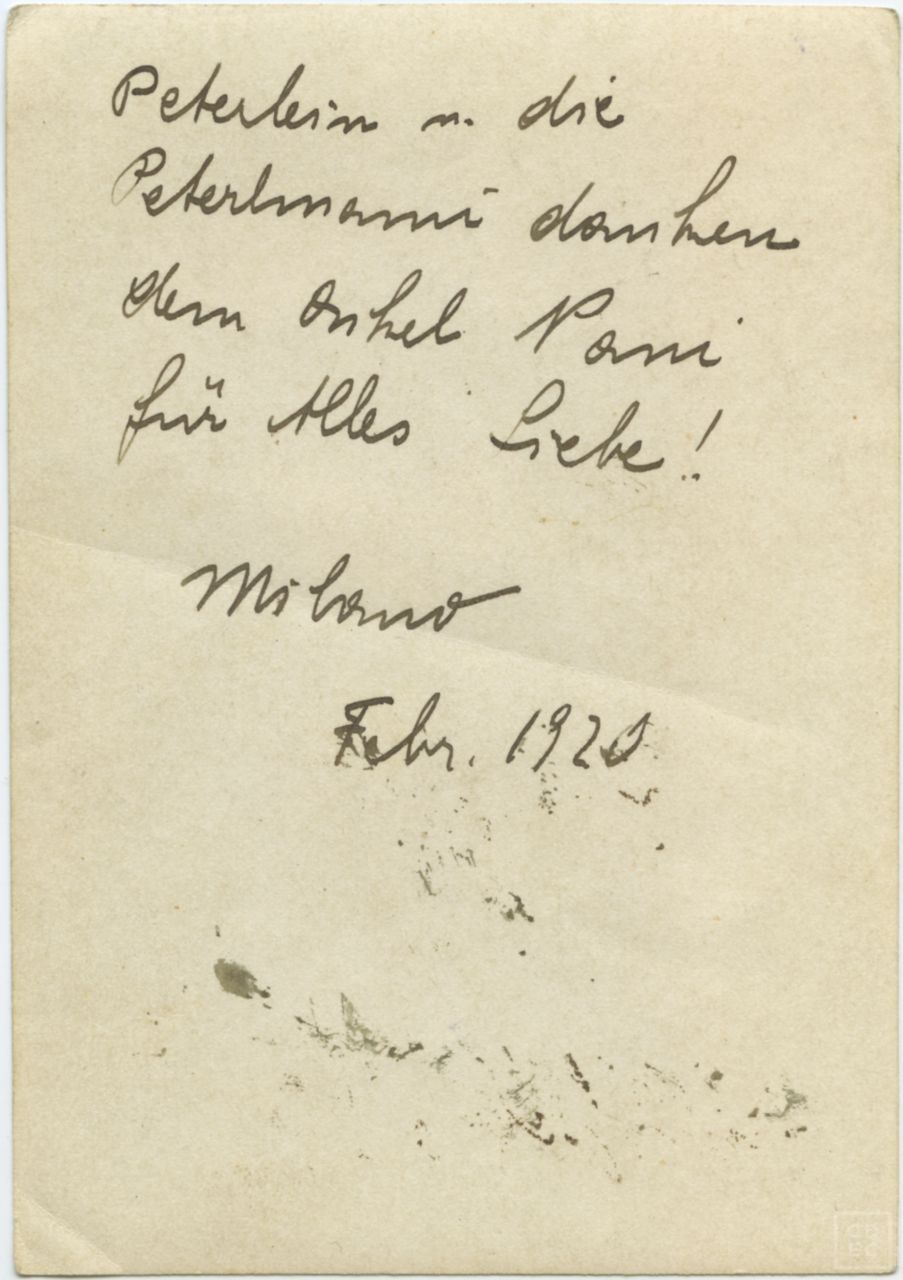 Peterlein u. die
Peterlmami danken
dem Onkel Pani
für Alles Liebe!
Milano
Febr.